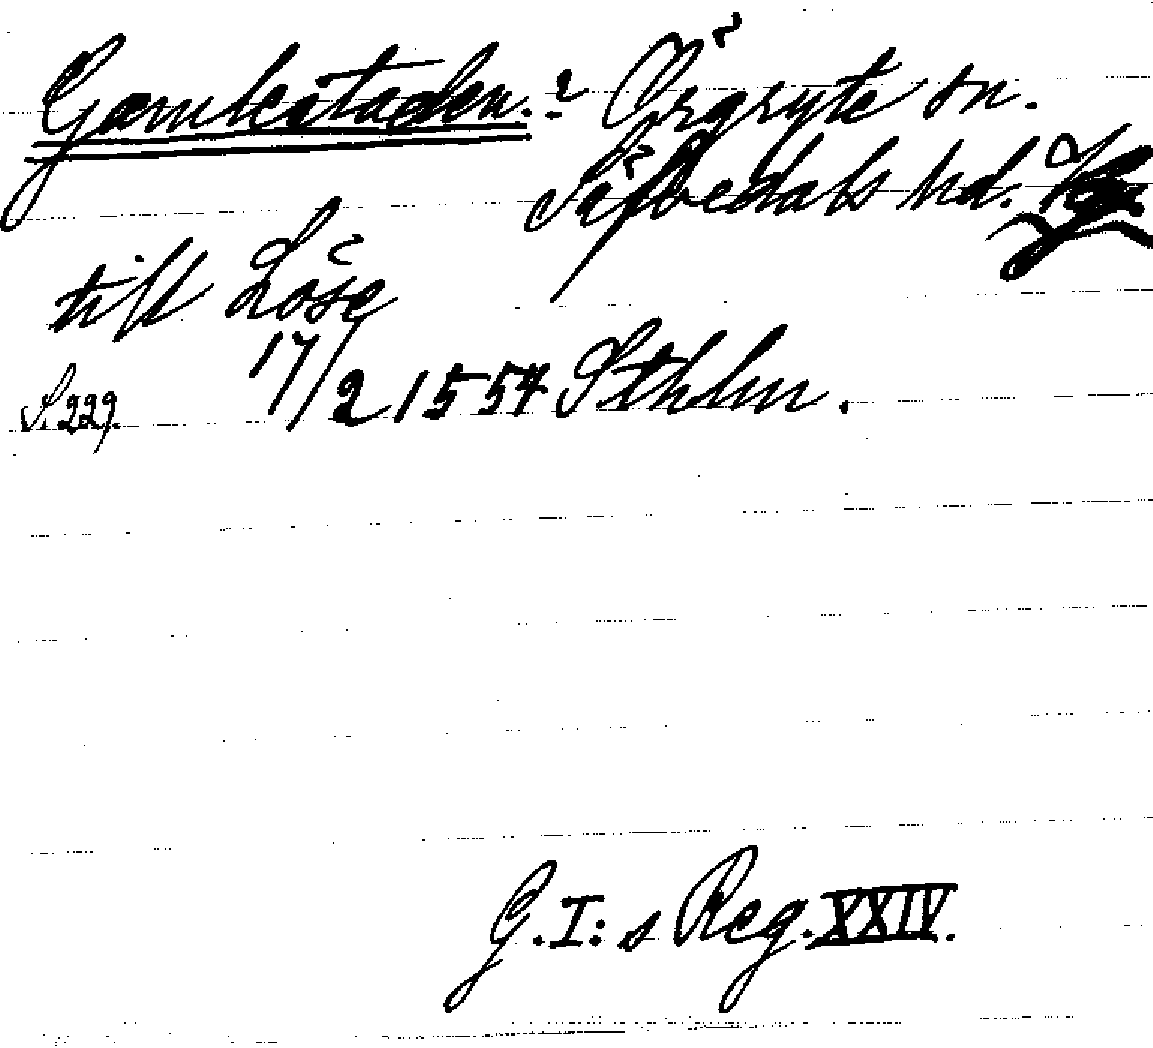 Gamlestaden.? Örgryte sn.
Säfvedals hd.
till Löse
S. 229. 17/2 1554 Sthlm.
G. I: s Reg. XXIV.